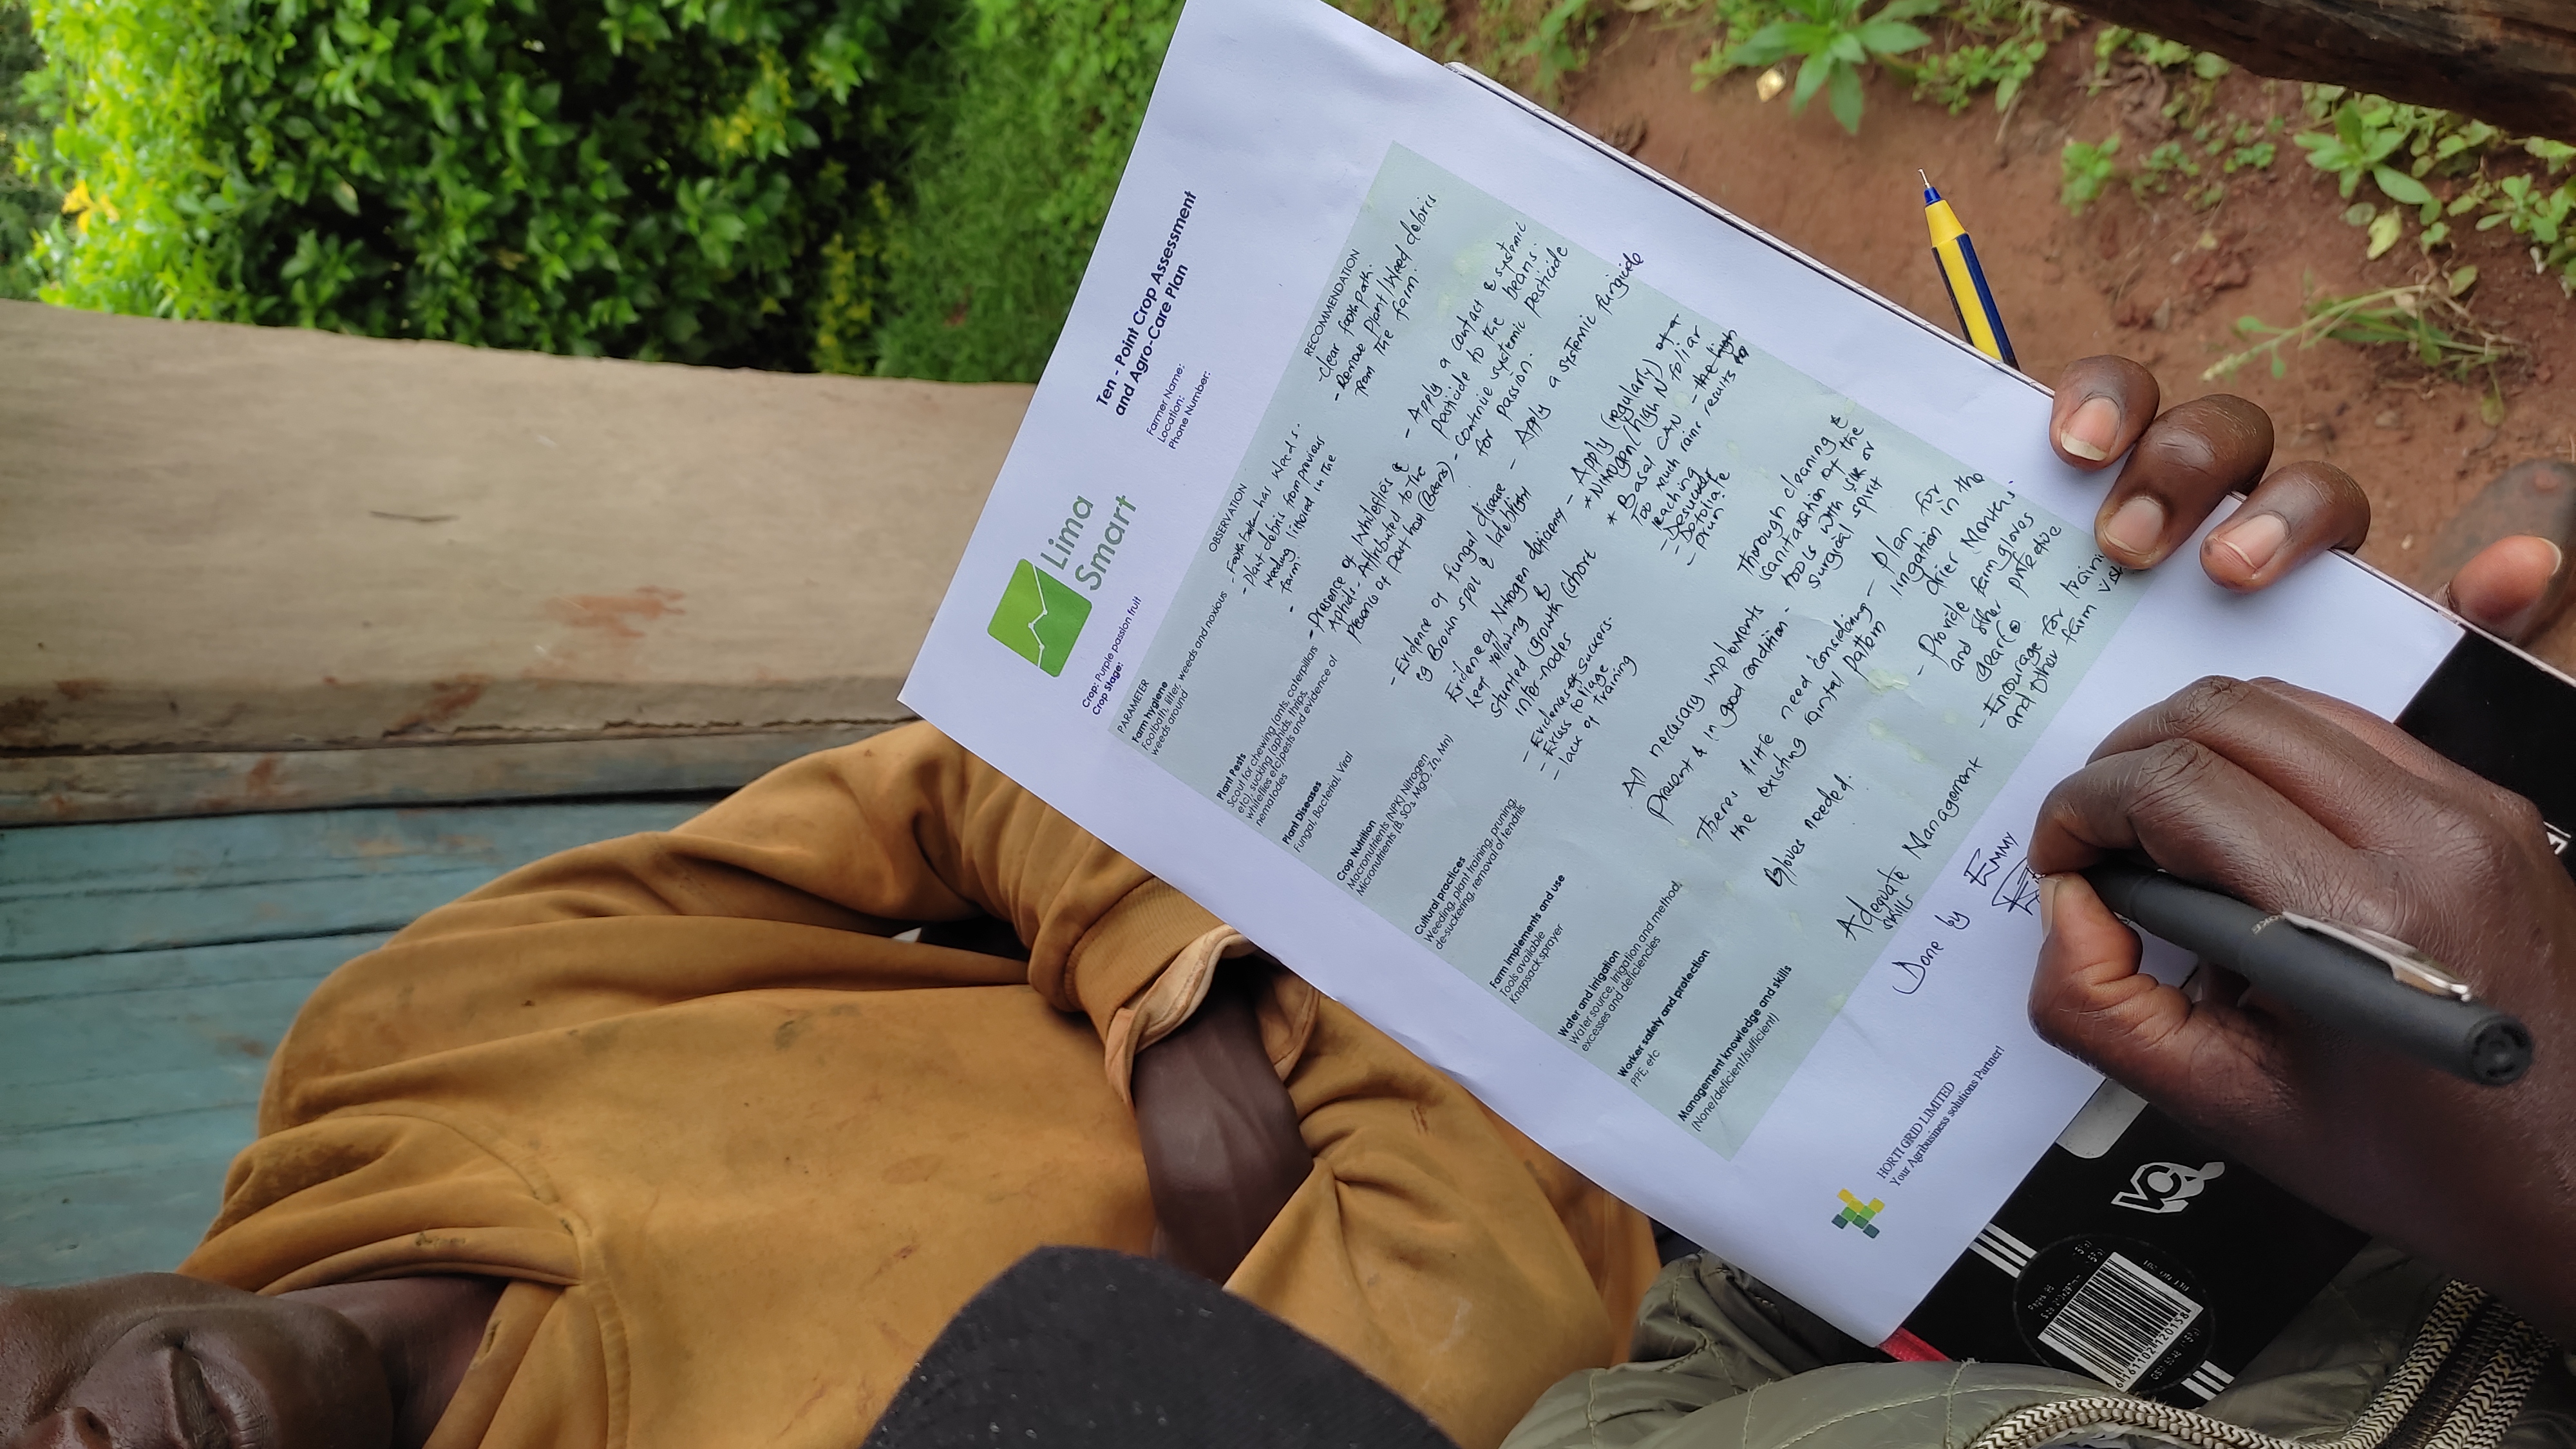 Lima
Smart
Ten - Point Crop Assessment
and Agro-Care Plan
Crop: Purple passion fruit
Crop Stage:
Farmer Name:
Location:
Phone Number:
PARAMETER
OBSERVATION
RECOMMENDATION
Farm hygiene
Footbath, litter, weeds and noxious
weeds around
has weeds.
- Plant debris from previous
weeding littered in the
farm.
- Clear footpath.
- Remove Plant/Weed debris
from the farm.
Plant Pests
Scout for chewing (ants, caterpillars
etc), sucking (aphids, thrips,
whiteflies etc)pests and evidence of
nematodes
- Presence of Whiteflies &
Aphids - Attributed to the
presence of past host (Beans)
- Apply a contact & systemic
pesticide to the beans.
- continue systemic pesticide
for passion.
Plant Diseases
Fungal, Bacterial, Viral
- Evidence of fungal disease
eg Brown spot & lateblight
- Apply a systemic fungicide
Crop Nutrition
Macronutrients (NPK) Nitrogen
Micronutrients (B, SO₃, MgO, Zn, Mn)
Evidence of Nitrogen deficiency
leaf yellowing &
stunted growth (short
inter-nodes
- Apply (regularly)
* Nitrogen (high N foliar
* Basal CAN - the high
Too much rains results to
leaching
Cultural practices
Weeding, plant training, pruning,
de-suckering, removal of tendrils
- Evidences of suckers.
- Excess foliage
- lack of training
- Desucker
- Defoliate
- prun.
Farm implements and use
Tools available
Knapsack sprayer
All necessary implements
Present & in good condition.
Thorough cleaning &
sanitazation of the
tools with or
surgical spirit
Water and Irrigation
Water source, irrigation and method,
excesses and deficiencies
Theres little need considering
the existing rainfal pattern
- Plan for
irrigation in the
drier Months.
Worker safety and protection
PPE, etc
Gloves needed.
- Provide farm gloves
and other protective
gear(s).
Management knowledge and skills
(None/deficient/sufficient)
Adequate Management
skills
- Encourage for
and other farm
Done by Emmy
HORTI GRID LIMITED
Your Agribusiness solutions Partner!